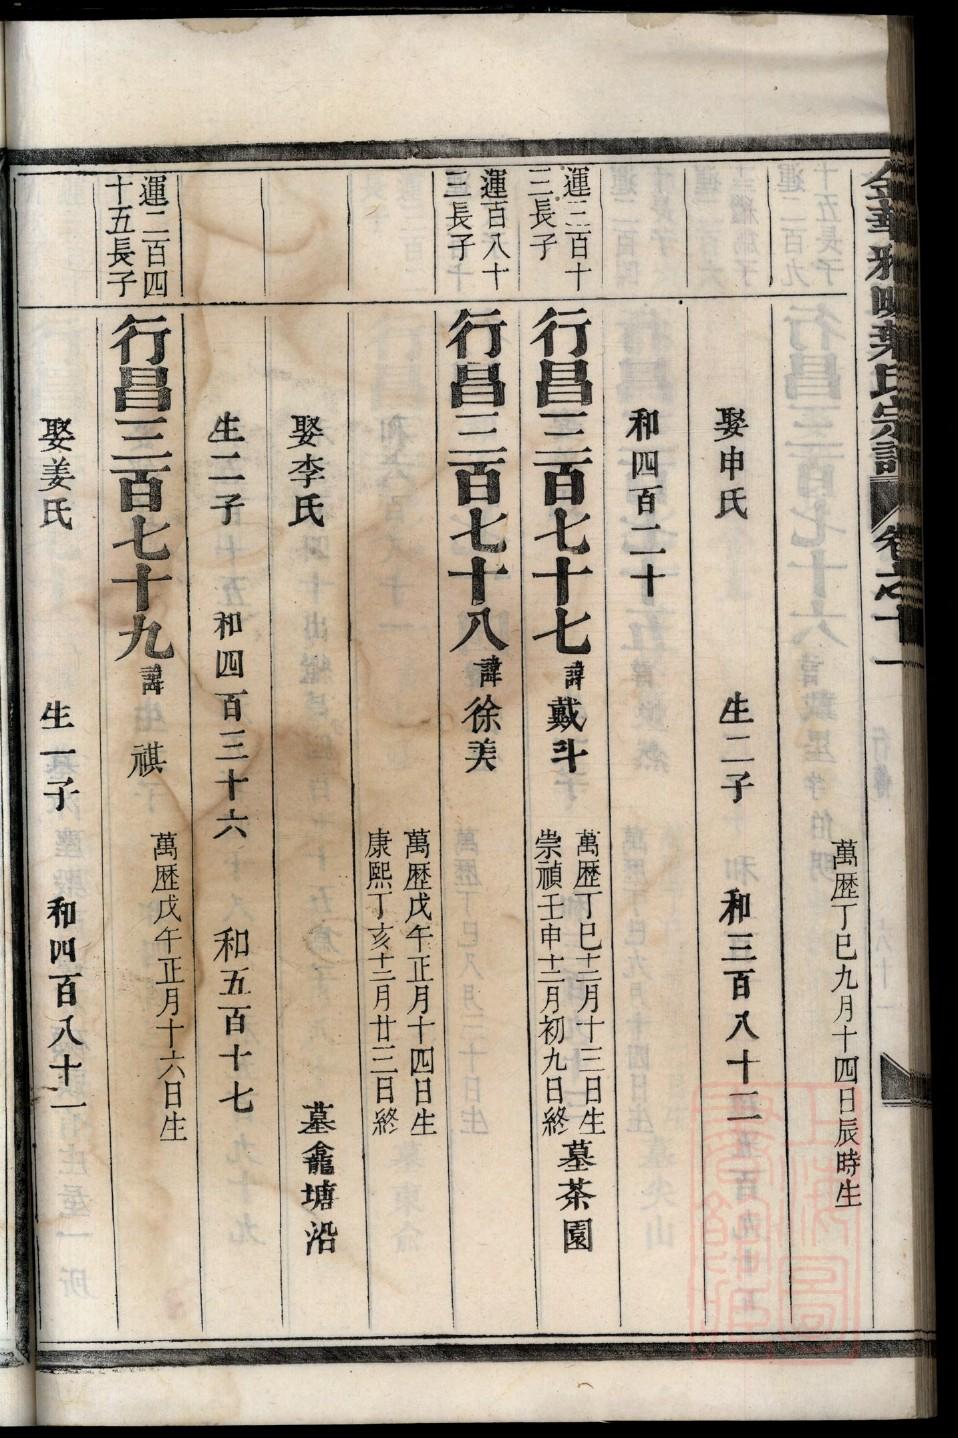 萬歷丁巳九月十四日辰時生
娶申氏
生二子
和三百八十二
和四百二十
運三百十
三長子
行昌三百七十七
諱戴斗
萬歷丁巳十二月十三日生
崇禎壬申十二月初九日終
墓茶園
運百八十
三長子
行昌三百七十八
諱徐美
萬歷戊午正月十四日生
康熙丁亥十二月廿三日終
娶李氏
墓龕塘沿
生二子
和四百三十六
和五百十七
運二百四
十五長子
行昌三百七十九
諱祺
萬歷戊午正月十六日生
娶姜氏
生一子
和四百八十一